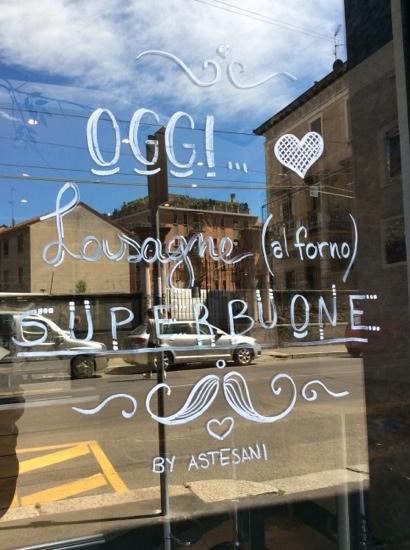 OGGI...
Lasagne (al forno)
SUPERBUONE...
BY ASTESANI